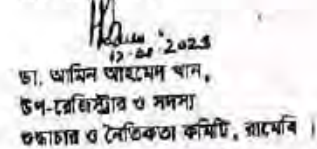 2023
ডা. আমিন আহমেদ খান,
উপ-রেজিস্ট্রার ও সদস্য
শুদ্ধাচার ও নৈতিকতা কমিটি, রামেবি ।